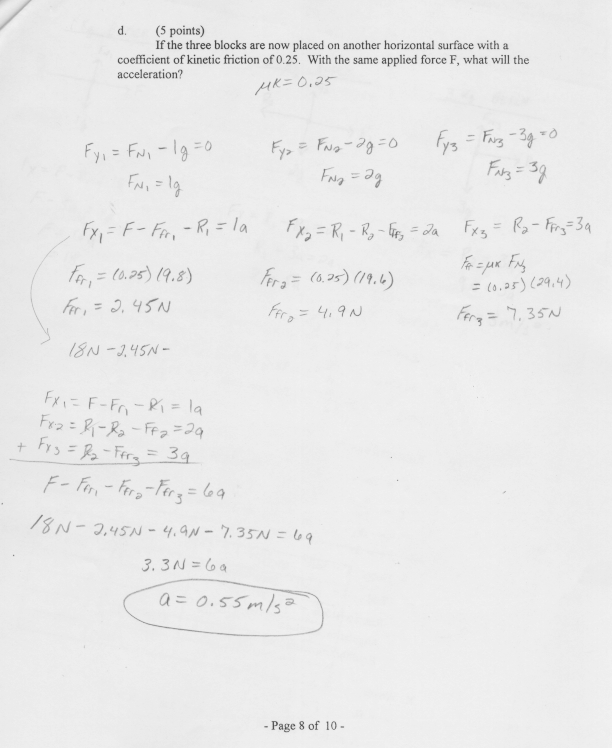 d. (5 points)
If the three blocks are now placed on another horizontal surface with a
coefficient of kinetic friction of 0.25. With the same applied force F, what will the
acceleration?
μK = 0.25
Fy₁ = FN₁ - 1g = 0
Fy₂ = FN₂ - 2g = 0
Fy₃ = FN₃ - 3g = 0
FN₁ = 1g
FN₂ = 2g
FN₃ = 3g
Fx₁ = F - Ffr₁ - R₁ = 1a
Fx₂ = R₁ - R₂ - Ffr₂ = 2a
Fx₃ = R₂ - Ffr₃ = 3a
Ffr₁ = (0.25)(9.8)
Ffr₂ = (0.25)(19.6)
Ff = μK FN₃
= (0.25)(29.4)
Ffr₁ = 2.45N
Ffr₂ = 4.9N
Ffr₃ = 7.35N
18N - 2.45N -
Fx₁ = F - Fr₁ - R₁ = 1a
Fx₂ = R₁ - R₂ - Ff₂ = 2a
+ Fx₃ = R₂ - Ffr₃ = 3a
F - Ffr₁ - Ffr₂ - Ffr₃ = 6a
18N - 2.45N - 4.9N - 7.35N = 6a
3.3N = 6a
a = 0.55 m/s²
- Page 8 of 10 -